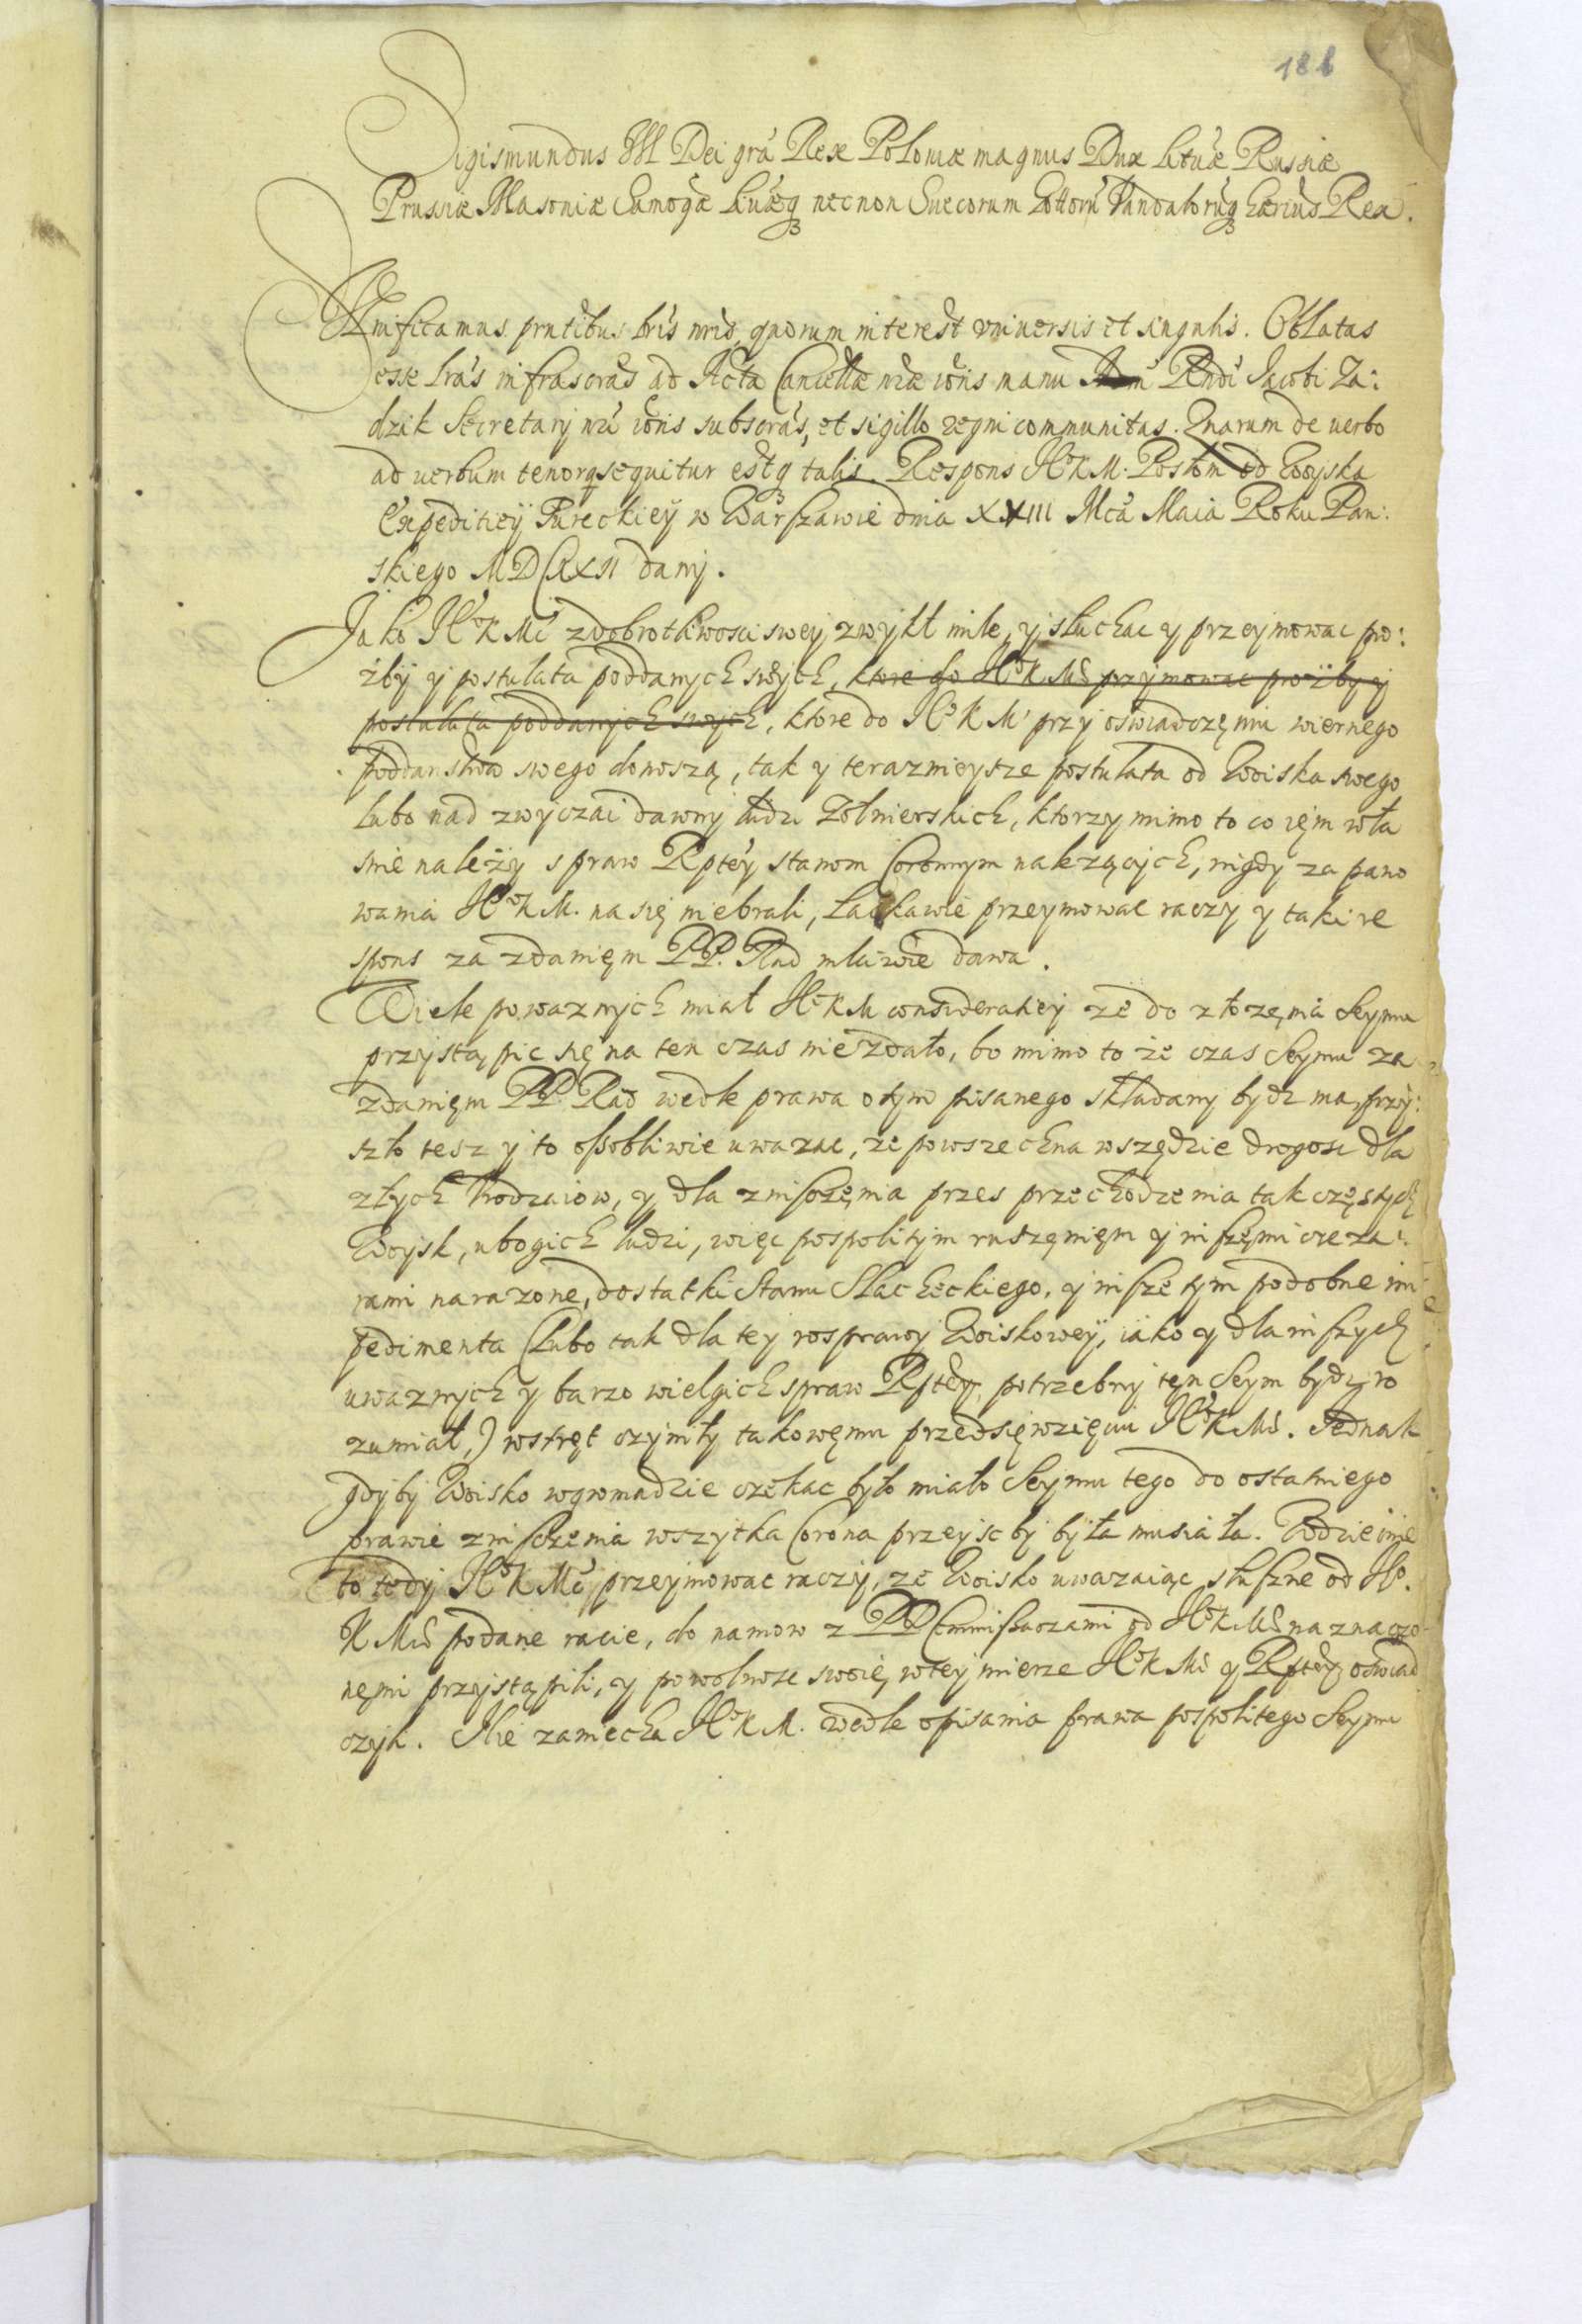 186
Sigismundus III Dei grã Rex Poloniæ magnus Dux Lituæ Russiæ
Prussiæ Masoniæ Samogæ Liuæq necnon Suecorum Gottorũ Vandalorũq hærius Rex.
Significamus pñtibus lrĩs nrĩs, quorum interest vniuersis et singulis. Oblatas
esse lrãs infrascrãs ad Acta Cancellæ nræ iõris manu Rndi Jacobi Za:
dzik Secretarij nrĩ iõris subscrãs, et sigillo regni communitas. Quarum de uerbo
ad uerbum tenor sequitur estq talis. Respons JeoKM. Posłom od Woyska
Expediticÿ Tureckieÿ w Warszawie dnia XXIII Mcã Maia Roku Pan:
skiego MDCXXII dany.
Jako JeoKMć z dobrotliwosci swey zwykł mile, y słuchac y przyimowac pro:
źbÿ y postulata poddanych swych, ktore do JeoKMći przymowac proźby y
postulata poddanych swych, ktore do JeoKMći przy oswiadczęniu wiernego
poddanstwa swego donoszą, tak y teraznieysze postulata od Woiska swego
lubo nad zwyczai dawny ludzi Zołnierskich, ktorzy mimo to co ięm wła
snie należy spraw Rptey stanom Coronnym należących, nigdy za pano
wania JeoKM. na się niebrali, łaskawie przeymowac raczy y taki re
spons za zdanięm PP. Rad mściwie dawa.
Wiele powaznych miał JeoKM consideratiey że do złozęnia Seymu
przystąpic się na ten czas niezdało, bo mimo to że czas Seymu za
zdanięm PP. Rad wedle prawa o tym pisanego składany bydz ma, przy:
szło tesz y to osobliwie uwazac, że powszechna wszędzie drogosc dla
złych Urodzaiow, y dla zniszczęnia przes przechodzenia tak częstych
Woysk, ubogich ludzi, więc pospolitym ruszęnięm y inszęmi cięza:
rami narazone, dostatki Stanu Slacheckiego, y insze tym podobne im
pedimenta (lubo tak dla tey rosprawy Woiskoweÿ, iako y dla inszych
uwaznych y barzo wielgich spraw Rptey, potrzebny ten Seym bydz ro
zumiał,) wstręt czyniły takowęmu przedsięwzięciu JeoKMći. Jednak
gdyby Woisko wgromadzie czekac było miało Seymu tego do ostatniego
prawie zniszczęnia wszytka Corona przeysc by była musiała. Wdzięcznie
to tedy JeoKMć przeymowac raczy, że Woisko uwazaiąc słuszne od Jeo.
KMći podane racie, do namow z PP Commissarzami od JeoKMći naznaczo
nęmi przystąpili, y powolnosc swoię wtey mierze JeoKMći y Rptey oswiad
czyli. Nie zaniecha JeoKM. wedle opisania prawa pospolitego Seymu